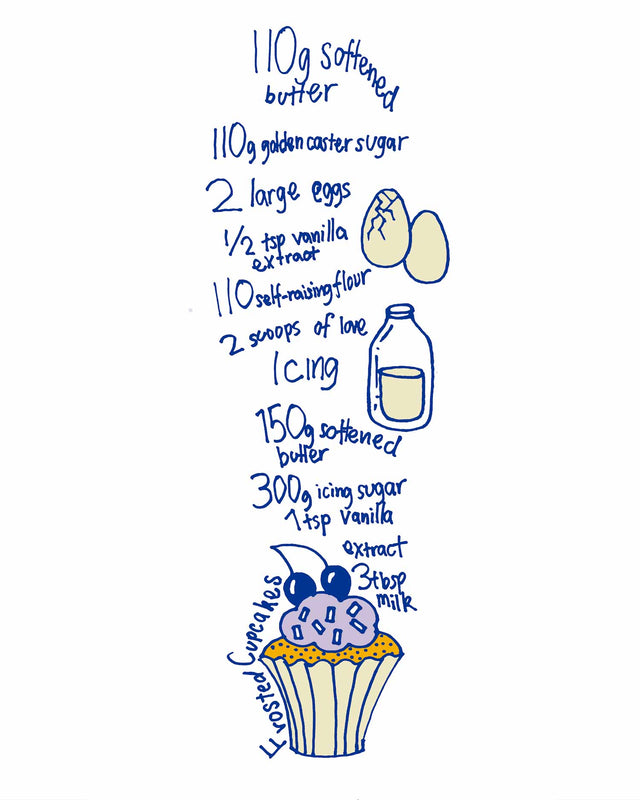 110g softened
butter
110g golden caster sugar
2 large eggs
1/2 tsp vanilla
extract
110 self-raising flour
2 scoops of love
Icing
150g softened
butter
300g icing sugar
1 tsp vanilla
extract
3tbsp
milk
Frosted Cupcakes